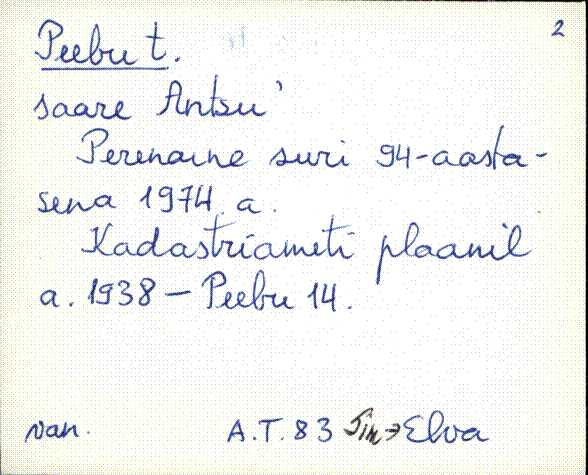 2
Peebu t.
saare Antsu'
Perenaine suri 94-aasta-
sena 1974. a.
Kadastriameti plaanil
a. 1938 – Peebu 14.
van. A.T. 83 → Elva